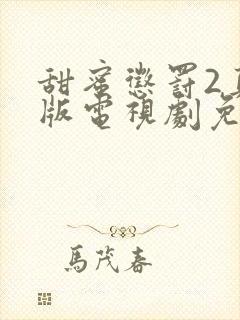 甜蜜懲罰2
版電視劇免
馬茂春